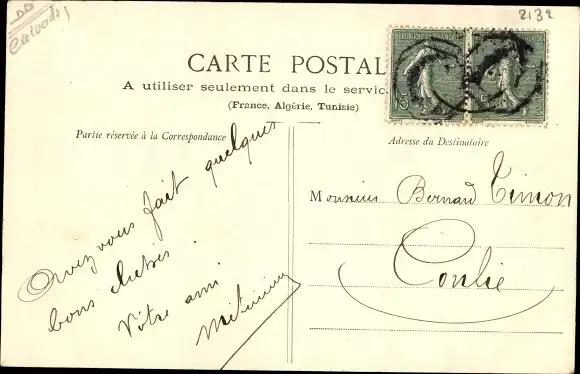 Calvados
2132
CARTE POSTAL
A utiliser seulement dans le servic
(France, Algérie, Tunisie)
REPUBLIQUE FRANÇAISE
15
Partie réservée à la Correspondance
Adresse du Destinataire
Avez vous fait quelques
bons clichés.
Vôtre ami
Monsieur Bernard Timon
Conlie